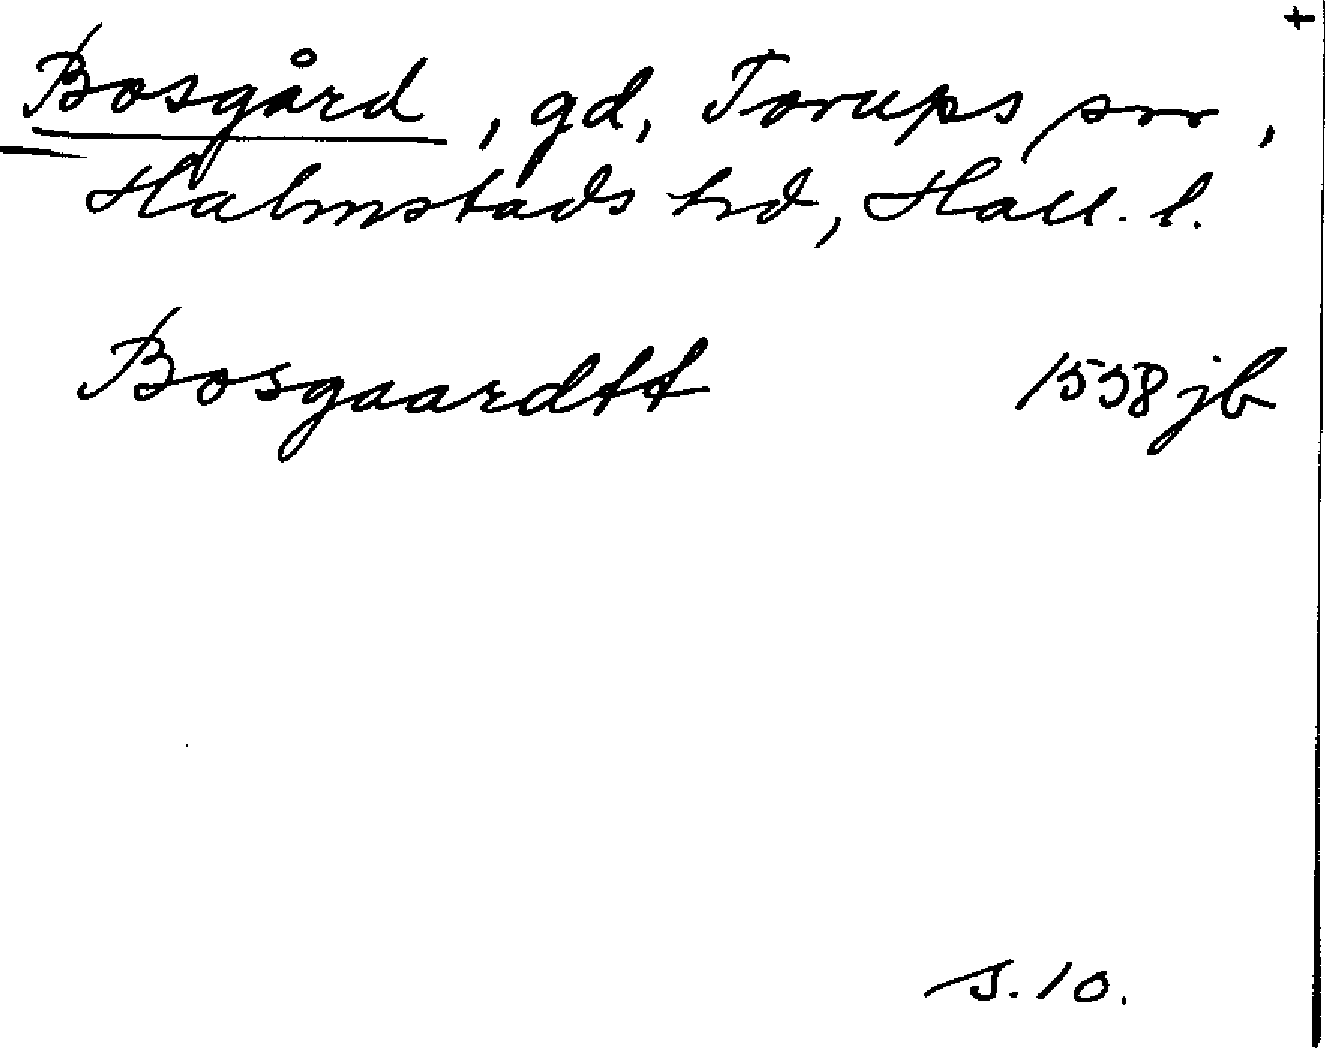 +
Bosgård, gd, Torups sn,
Halmstads hd, Hall. l.
Bosgaardtt 1558 jb
s. 10.